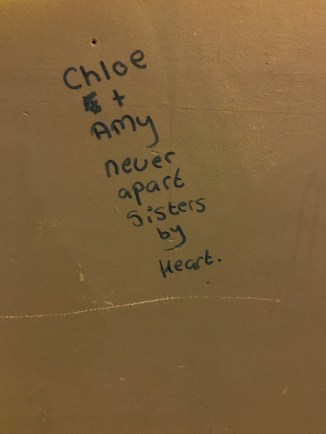 Chloe
+
Amy
never
apart
Sisters
by
Heart.